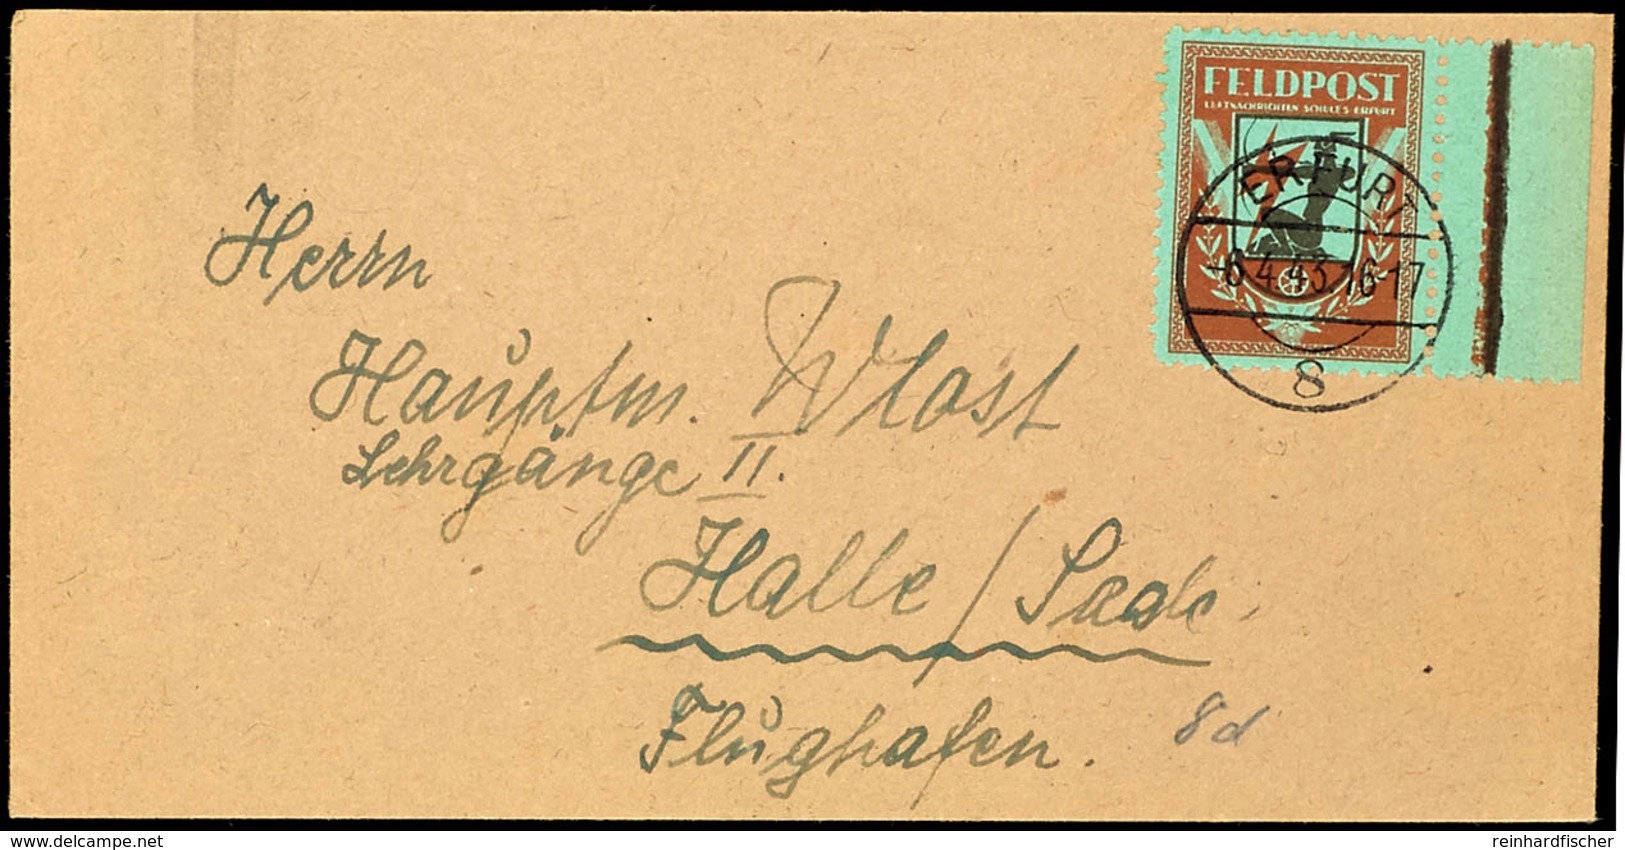 FELDPOST
LUFTNACHRICHTEN SCHULE 5 ERFURT
ERFURT
-6.4.43.16-17
8
Herrn
Hauptm. Wlost
Lehrgänge II.
Halle/Saale
Flughafen.
8d
delcampe.net
reinhardfischer